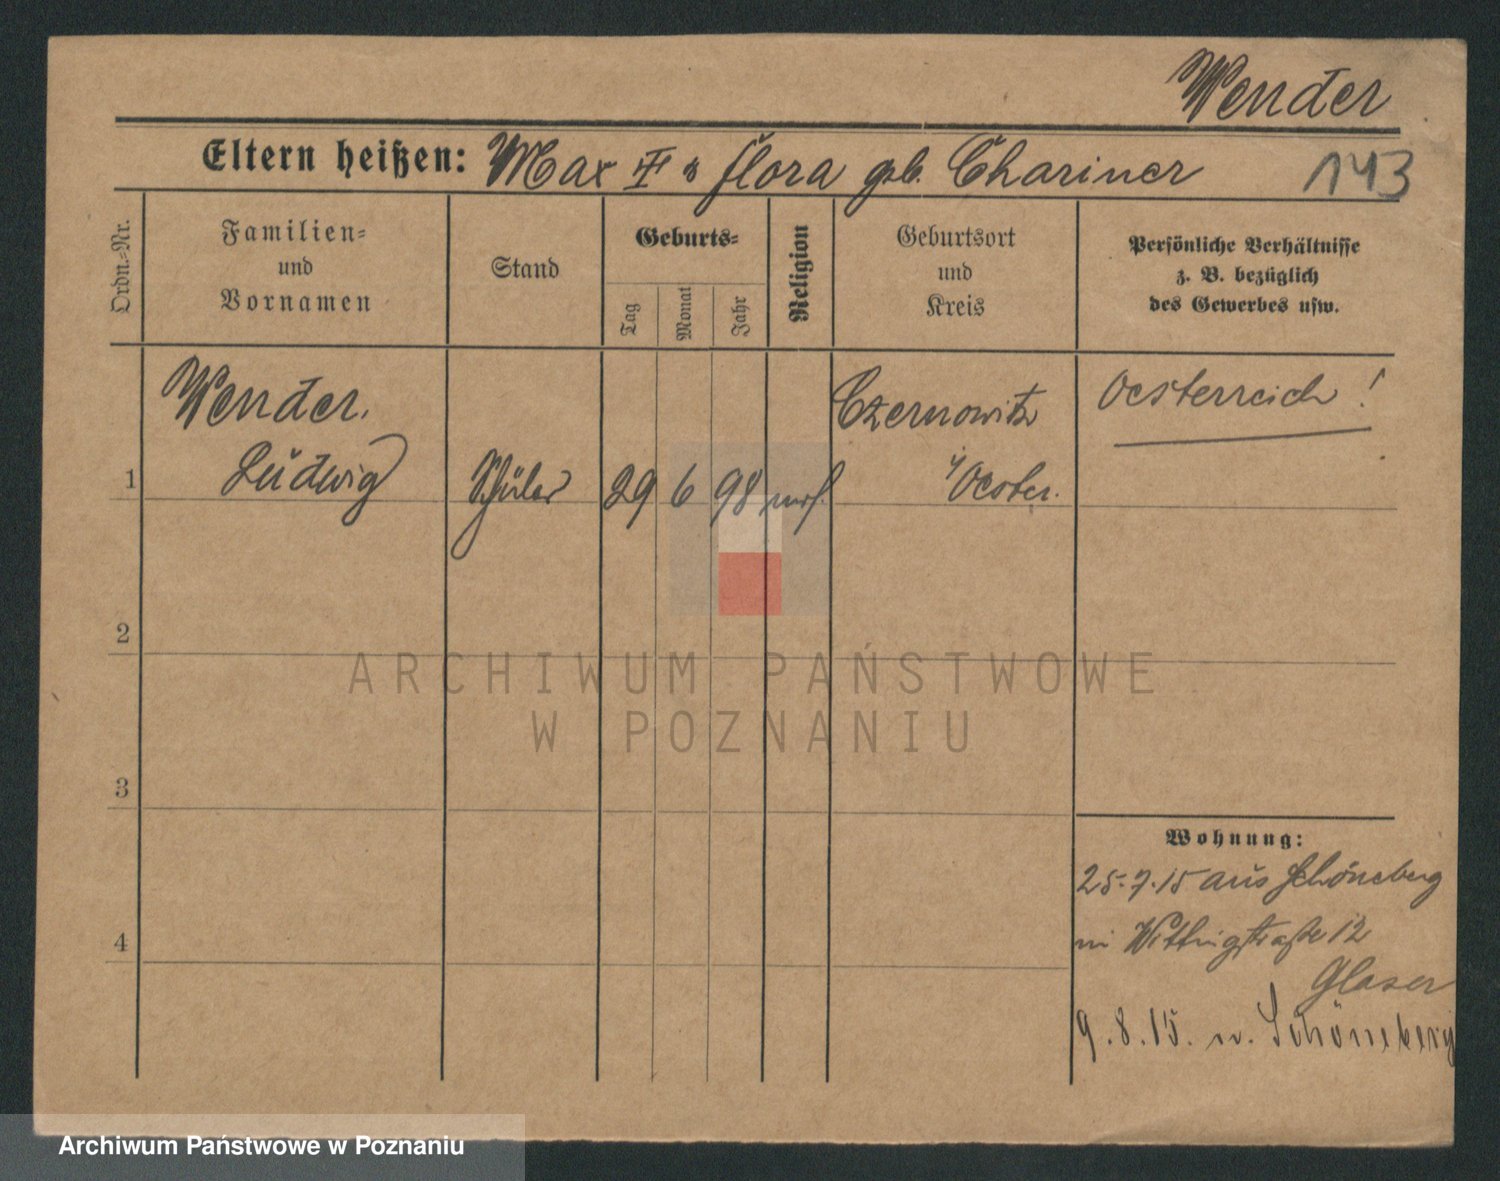 Wender
Eltern heißen: Max † u Flora geb. Chariner 143
Ordn.-Nr.
Familien-
und
Vornamen
Stand
Geburts-
Tag
Monat
Jahr
Religion
Geburtsort
und
Kreis
Persönliche Verhältnisse
z. B. bezüglich
des Gewerbes usw.
Wender,
Ludwig
1
Schüler
29
6
98
mos.
Czernowitz
i/Oester.
Oesterreich!
2
3
4
Wohnung:
25.7.15 aus Schöneberg
Wittingstraße 12
Glaser
9.8.15. n. Schöneberg
ARCHIWUM PAŃSTWOWE
W POZNANIU
Archiwum Państwowe w Poznaniu